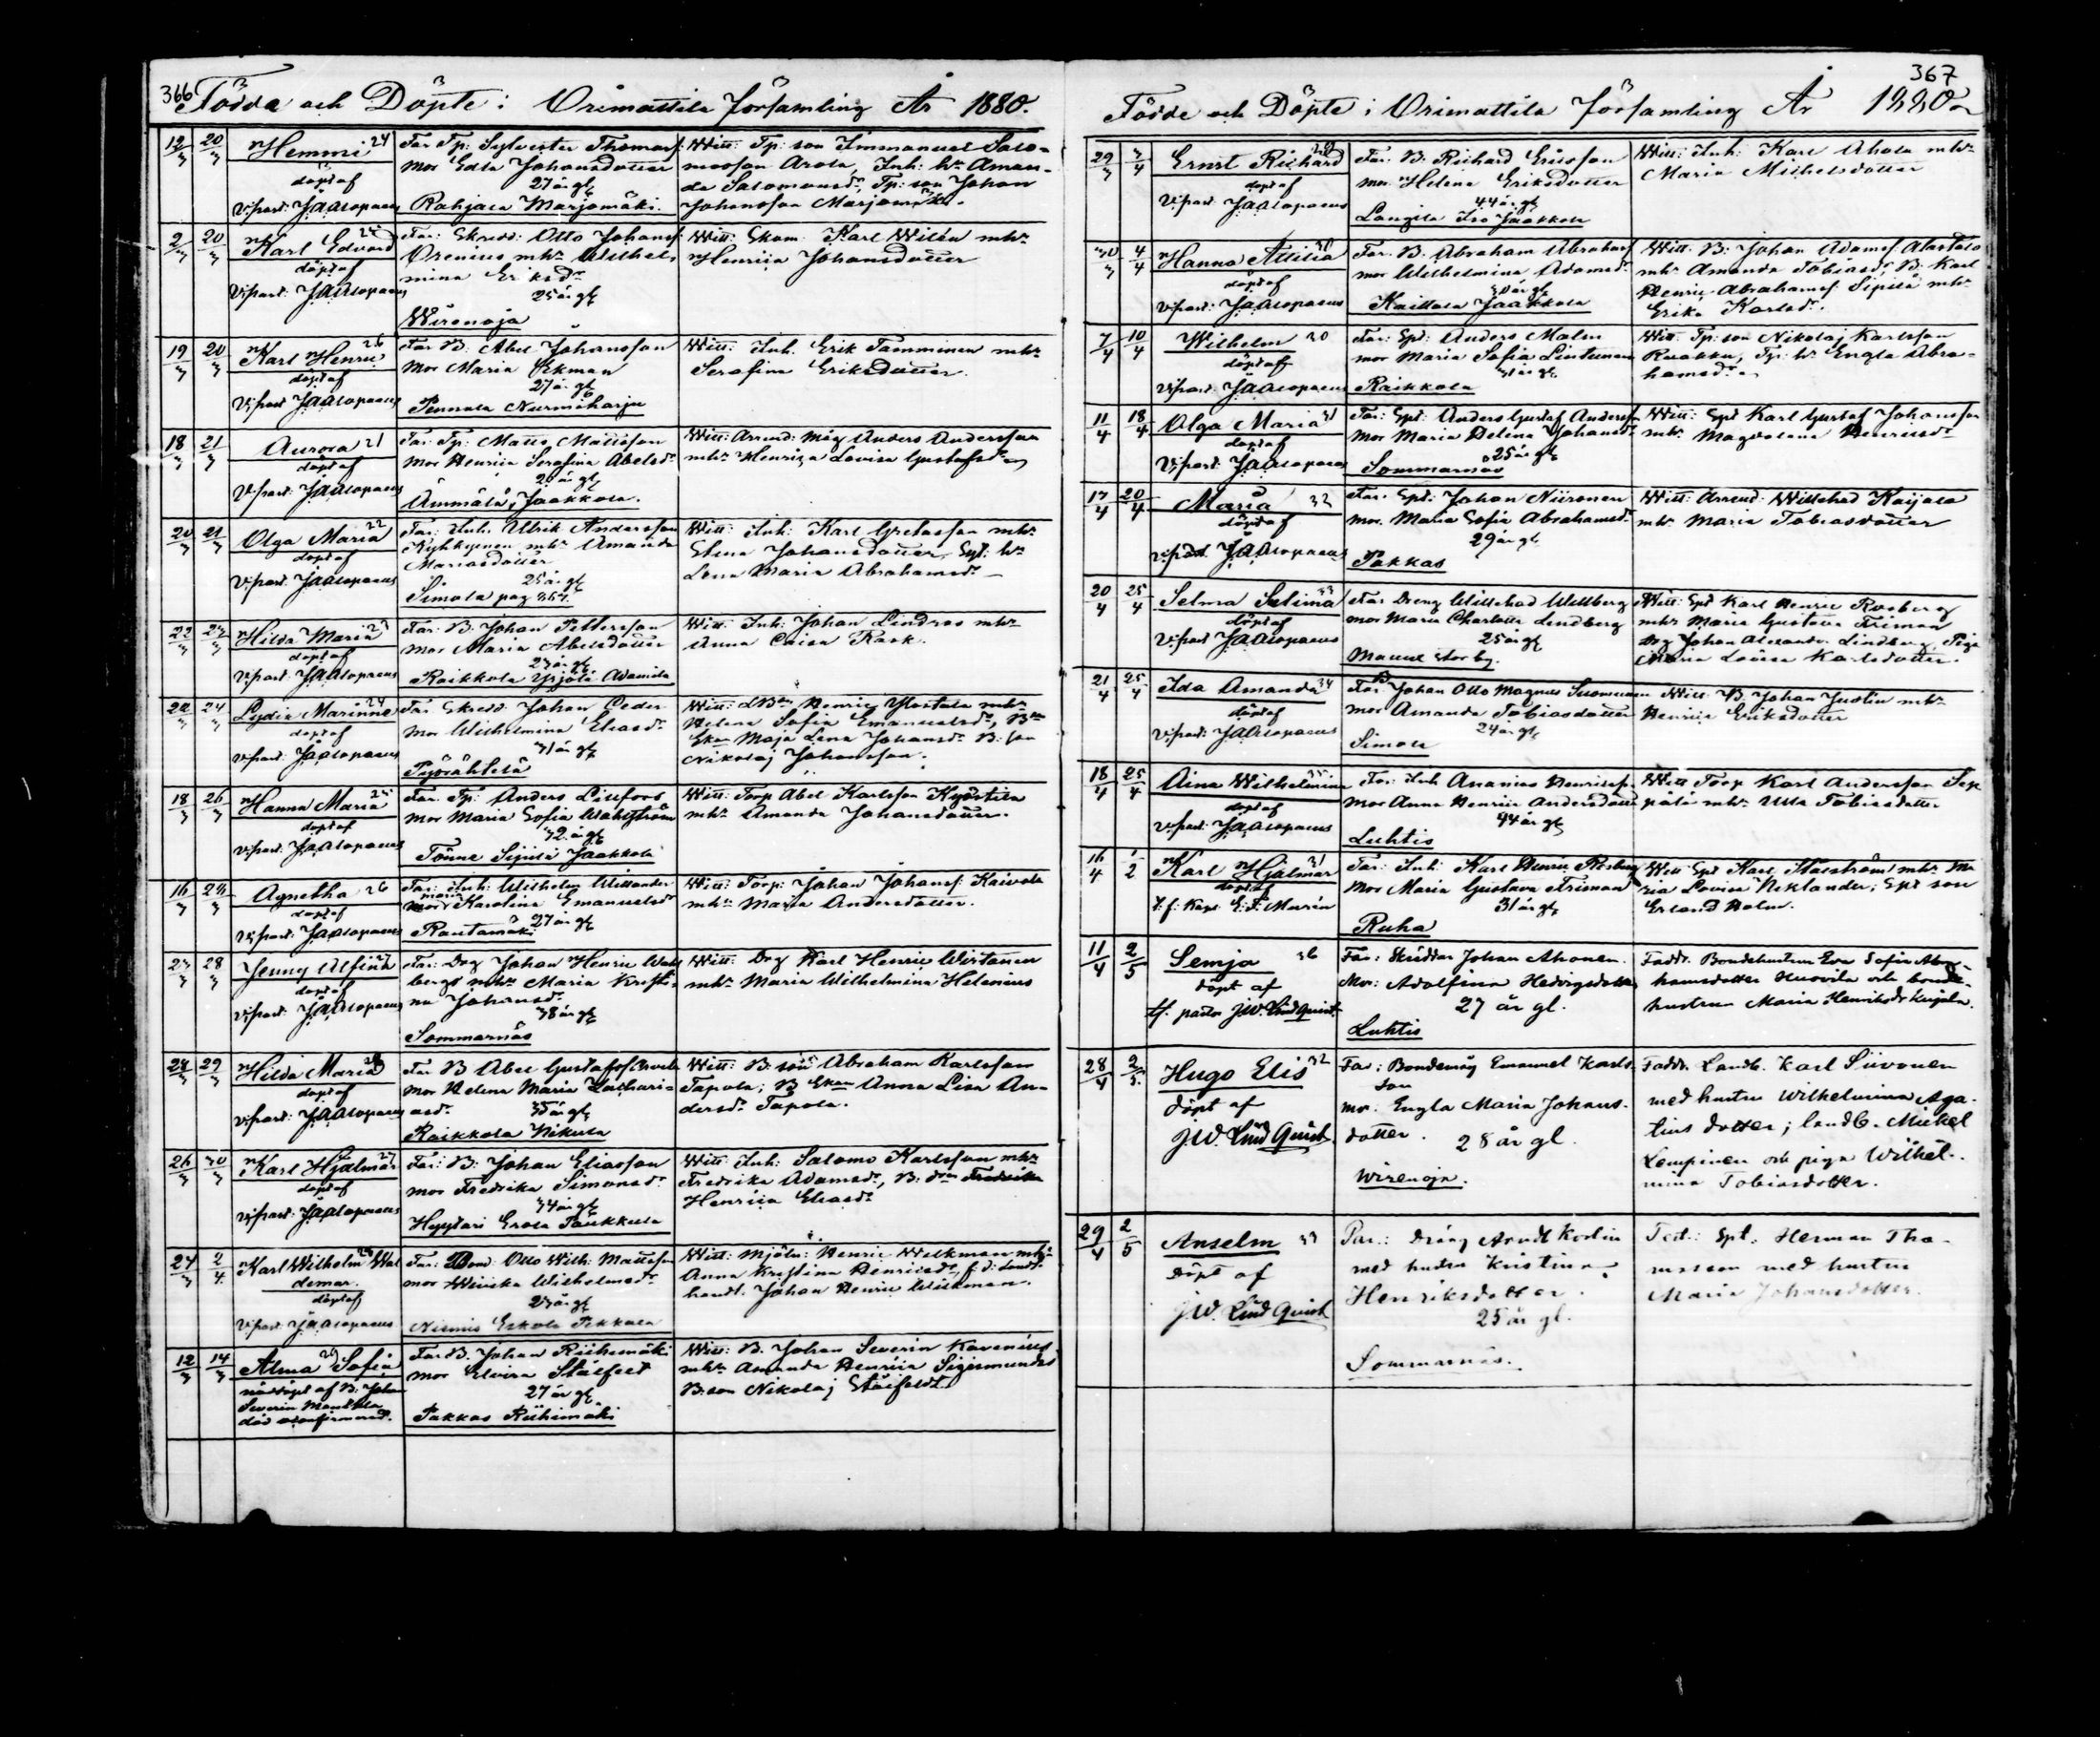 366 Födda och Döpte i Orimattila församling År 1880.
12/3 20/3 Hemmi 24
döpt af
V:past: J A Alopaeus
Far Tp: Sylvester Thomasf:
mor Edla Johansdotter
27 år gl
Rahjala Marjomäki
Witt: Tp: son Immanuel Salo-
monsson Arola, Inh: hu Aman-
da Salomonsdr, Tp: son Johan
Johansson Marjomäki.
2/3 20/3 Karl Edvard 25
döpt af
V:past: J A Alopaeus
Far: Skredd: Otto Johansf:
Orenius mhu Wilhel-
mina Eriksdr
25 år gl
Wirenoja
Witt: Skom: Karl Wilén mhu
Henriia Johansdotter
19/3 20/3 Karl Henric 26
döpt af
V:past J A Alopaeus
Far B: Abel Johansson
mor Maria Ekman
27 år gl
Pennala Nurmiharju
Witt: Inh: Erik Tamminen mhu
Serafina Eriksdotter.
18/3 21/3 Aurora 21
döpt af
V:past J A Alopaeus
Far: Tp: Matts Mattsson
mor Henriia Serafina Abelsdr
20 år gl
Ämmälä, Jaakkola.
Witt: Arrend: måg Anders Andersson
mhu Henriia Lovisa Gustafsdr
20/3 21/3 Olga Maria 22
döpt af
V:past: J A Alopaeus
Far: Inh: Ulrik Andersson
Kyhkynen mhu Amanda
Mariasdotter
25 år gl
Simola pag 857.
Witt: Inh: Karl Gretasson mhu
Stina Johansdotter, Spt: hu
Lena Maria Abrahamsdr
22/3 23/3 Hilda Maria 23
döpt af
V:past: J A Alopaeus
Far: B: Johan Pettersson
mor Maria Abelsdotter
23 år gl
Raikkola Yrjölä Adamila
Witt: Inh: Johan Lindros mhu
Anna Caisa Rask.
22/3 24/3 Lydia Marinne 24
döpt af
V:past: J A Alopaeus
Far Skredd: Johan Ceder
mor Wilhelmina Eliasdr
31 år gl
Pyörähtelä
Witt: Henric Ylostalo mhu
Helena Sofia Emanuelsdr,
Maja Lena Johansdr B: son
Nikolaj Johansson.
18/3 26/3 Hanna Maria 25
döpt af
V:past: J A Alopaeus
Far: Tp: Anders Lillfors
mor Maria Sofia Wahlström
32 år gl
Tönne Sipilä Jaakkola
Witt: Torp Abel Karlsson Kyöstila
mhu Amanda Johansdotter.
16/3 28/3 Agnetha 26
döpt af
V:past: J A Alopaeus
Far: Inh: Wilhelm Willander
mor Maria Karolina Emanuelsdr
27 år gl
Rantamäki
Witt: Torp: Johan Johansf: Kaivola
mhu Maria Andersdotter.
23/3 28/3 Jenny Alfina 27
döpt af
V:past: J A Alopaeus
Far: Drg Johan Henric Wall
berg mhu Maria Kristi-
na Johansdr
38 år gl
Sommarnäs
Witt: Drg Karl Henric Wirtanen
mhu Maria Wilhelmina Helenius
24/3 29/3 Hilda Maria 28
döpt af
V:past: J A Alopaeus
Far B Abel Gustafsf:
mor Helena Maria Zachari-
asdr 35 år gl
Raikkola Nikula
Witt: B: son Abraham Karlsson
Tapola; B Anna Lisa An-
dersdr Tapola.
26/3 30/3 Karl Hjalmar 27
döpt af
V:past: J A Alopaeus
Far: B: Johan Eliasson
mor Fredrika Simonsdr
34 år gl
Hyytari Erola Paukkula
Witt: Inh: Salomo Karlsson mhu
Fredrika Adamsdr, B:
Henriia Eliasdr
24/3 2/4 Karl Wilhelm Wal 28
demar.
döpt af
V:past: J A Alopaeus
Far: Bond: Otto Wilh: Mattsson
mor Wenska Wilhelmsdr
23 år gl
Niemis Eskola Pekkala
Witt: Mjöln: Henric Weckman mhu
Anna Kristina Henricsdr, f. d: Land-
handl. Johan Henric Wickman.
12/3 14/3 Alma Sofia 29
nöddöpt af B: Johan
Severin Mantela
dop confirmerad.
Far B. Johan Riihimäki
mor Elvira Stålfelt
27 år gl.
Pakkas Riihimäki
Witt: B. Johan Severin Kavenius
mhu Amanda Henriia Sigismundsdr
B: son Nikolaj Stålfeldt
367
Födde och Döpte i Orimattila församling År 1880
29/3 3/4 Ernst Richard 29
döpt af
V:past: J A Alopaeus
Far: B: Richard Ericsson
mor. Helena Eriksdotter
44 år gl
Långila Iso Jaakkola
Witt: Inh: Karl Ahola mhu
Maria Michelsdotter
30/3 4/4 Hanna Attilia 30
döpt af
V:past: J A Alopaeus
Far B. Abraham Abrahamsf
mor Wilhelmina Adamsdr
30 år gl
Kaittala Jaakkola
Witt: B: Johan Adamsf. Alastalo
mhu Amanda Tobiasdr, B: Karl
Henric Abrahamsf Sipilä mhu
Erika Karlsdr.
7/4 10/4 Wilhelm 30
döpt af
V:past: J A Alopaeus
Far: Spt: Anders Malm
mor Maria Sofia Lindeman
31 år gl.
Raikkola
Witt Tp: son Nikolaj Karlsson
Ruokku, Tp: hu Engla Abra-
hamsdr
11/4 18/4 Olga Maria 31
döpt af
V:past: J A Alopaeus
Far: Spt: Anders Gustaf Andersf
mor Maria Helena Johansdr
25 år gl
Sommarnäs
Witt: Spt Karl Gustaf Johansson
mhu Magdalena Henricsdr
17/4 20/4 Maria 32
döpt af
V:past J A Alopaeus
Far: Spt: Johan Niironen
mor. Maria Sofia Abrahamsdr
29 år gl.
Pakkas
Witt: Arrend: Willehad Kaijala
mhu Maria Tobiasdotter
20/4 25/4 Selma Selima 33
döpt af
V:past J A Alopaeus
Far Dreng Willehad Wellberg
mor Maria Charlotta Lindberg
25 år gl
Mallusstorby.
Witt: Spt Karl Henric Rosberg
mhu Maria Gustava Friman
Drg Johan Alexander Lindberg, Piga
Maria Lovisa Karlsdotter.
21/4 25/4 Ida Amanda 34
döpt af
V:past: J A Alopaeus
Far B Johan Otto Magnus Suomunen
mor Amanda Tobiasdotter
24 år gl
Simola
Witt. B. Johan Justin mhu
Henriia Eriksdotter
18/4 25/4 Aina Wilhelmina 35
döpt af
V:past: J A Alopaeus
Far: Inh Ananias Henricsf.
mor Anna Henriia Andersdotter
44 år gl
Luhtis
Witt Torp Karl Andersson Sep
pälä mhu Ulla Tobiasdotter
16/4 1/2 Karl Hjalmar 31
döpt af
t: f: Kapl: E: F: Murén
Far: Inh: Karl Henric Rosberg
mor Maria Gustava Friman
31 år gl
Ruha
Witt Spt Karl mhu Ma
ria Lovisa Niklander, Spt son
Erland Holm.
11/4 2/5 Semja 36
döpt af
tf. pastor J W. Lindquist
Far: Skräddar Johan Ahonen.
Mor: Adolfina Hedvigsdotter
27 år gl.
Luhtis
Faddr. Bondehustrun Eva Sofia Abra-
hamsdotter Huovila och bonde-
hustrun Maria Henriksdr Kuijala.
28/4 2/5. Hugo Elis 32
Döpt af
J W. Lindquist.
Far: Bondemåg Emanuel Karls-
son
mor. Engla Maria Johans-
dotter. 28 år gl.
Wirenoja.
Faddr. Landb. Karl Siivonen
med hustru Wilhelmina Aga-
tius dotter; landb. Mickel
Lempinen och pigan Wilhel-
mina Tobiasdotter.
29/4 2/5 Anselm 33
Döpt af
J W. Lindquist
Far: Dräng Arvid Kortin
med hustru Kristina
Henriksdotter.
25 år gl.
Sommarnäs.
Test: Spt. Herman Tho-
masson med hustru
Maria Johansdotter.